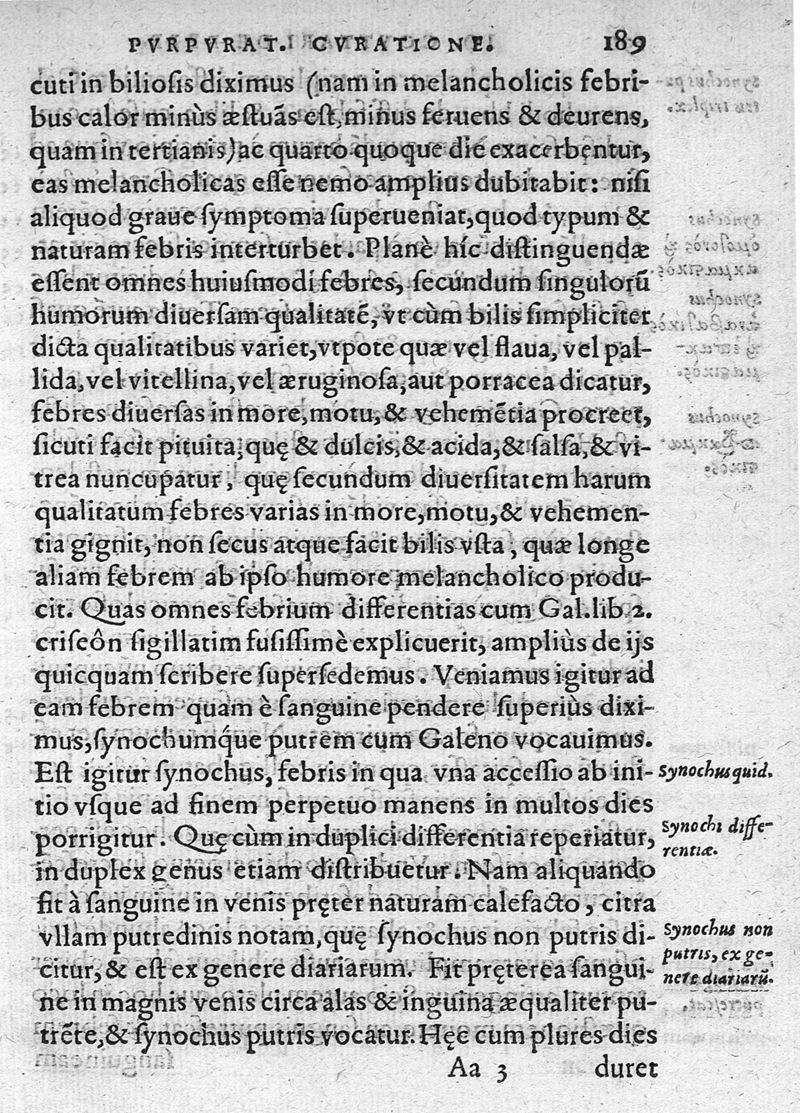 PVRPVRAT. CVRATIONE. 189
cuti in bilioſis diximus (nam in melancholicis febri-
bus calor minùs æſtuãs eſt, minus feruens & deurens,
quam in tertianis) ac quarto quoque die exacerbentur,
eas melancholicas eſſe nemo amplius dubitabit: niſi
aliquod graue ſymptoma ſuperueniat, quod typum &
naturam febris interturbet. Planè híc diſtinguendæ
eſſent omnes huiuſmodi febres, ſecundum ſingulorũ
humorum diuerſam qualitatẽ, vt cùm bilis ſimpliciter
dicta qualitatibus variet, vtpote quæ vel flaua, vel pal-
lida, vel vitellina, vel æruginoſa, aut porracea dicatur,
febres diuerſas in more, motu, & vehemẽtia procreet,
ſicuti facit pituita, quę & dulcis, & acida, & ſalſa, & vi-
trea nuncupatur, quę ſecundum diuerſitatem harum
qualitatum febres varias in more, motu, & vehemen-
tia gignit, non ſecus atque facit bilis vſta, quæ longe
aliam febrem ab ipſo humore melancholico produ-
cit. Quas omnes febrium differentias cum Gal. lib 2.
criſeôn ſigillatim fuſiſſimè explicuerit, ampliùs de ijs
quicquam ſcribere ſuperſedemus. Veniamus igitur ad
eam febrem quam è ſanguine pendere ſuperiùs dixi-
mus, ſynochumq́ue putrem cum Galeno vocauimus.
Eſt igitur ſynochus, febris in qua vna acceſſio ab ini-
tio vſque ad finem perpetuo manens in multos dies
porrigitur. Quę cùm in duplici differentia reperiatur,
in duplex genus etiam diſtribuetur. Nam aliquando
fit à ſanguine in venis pręter naturam calefacto, citra
vllam putredinis notam, quę ſynochus non putris di-
citur, & eſt ex genere diariarum. Fit pręterea ſangui-
ne in magnis venis circa alas & inguina æqualiter pu-
trẽte, & ſynochus putris vocatur. Hęc cum plures dies
Aa 3 duret
Synochus quid.
Synochi diffe-
rentiæ.
Synochus non
putris, ex ge-
nere diariarũ.